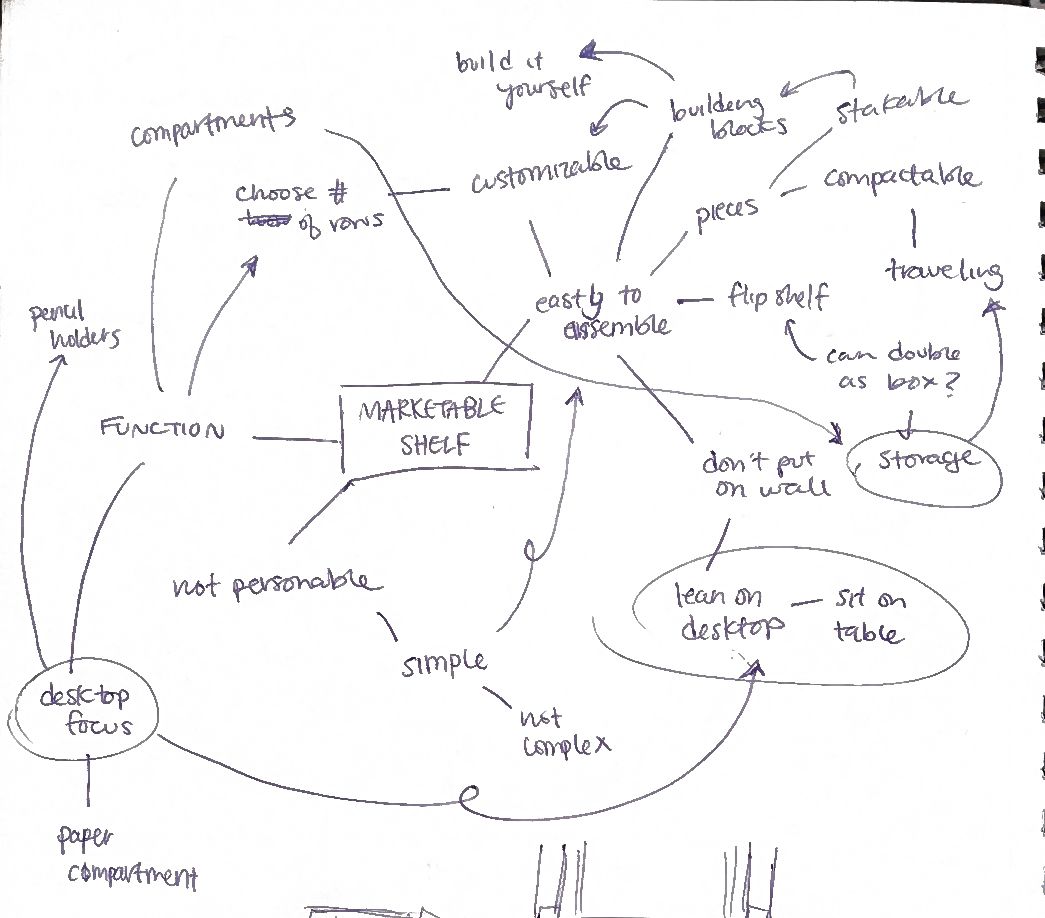 build it
yourself
building
blocks
stakable
compartments
customizable
compactable
choose #
of rows
pieces
traveling
easily to
assemble
flip shelf
pencil
holders
can double
as box?
MARKETABLE
SHELF
FUNCTION
don't put
on wall
storage
not personable
lean on
desktop
sit on
table
simple
desktop
focus
not
complex
paper
compartment